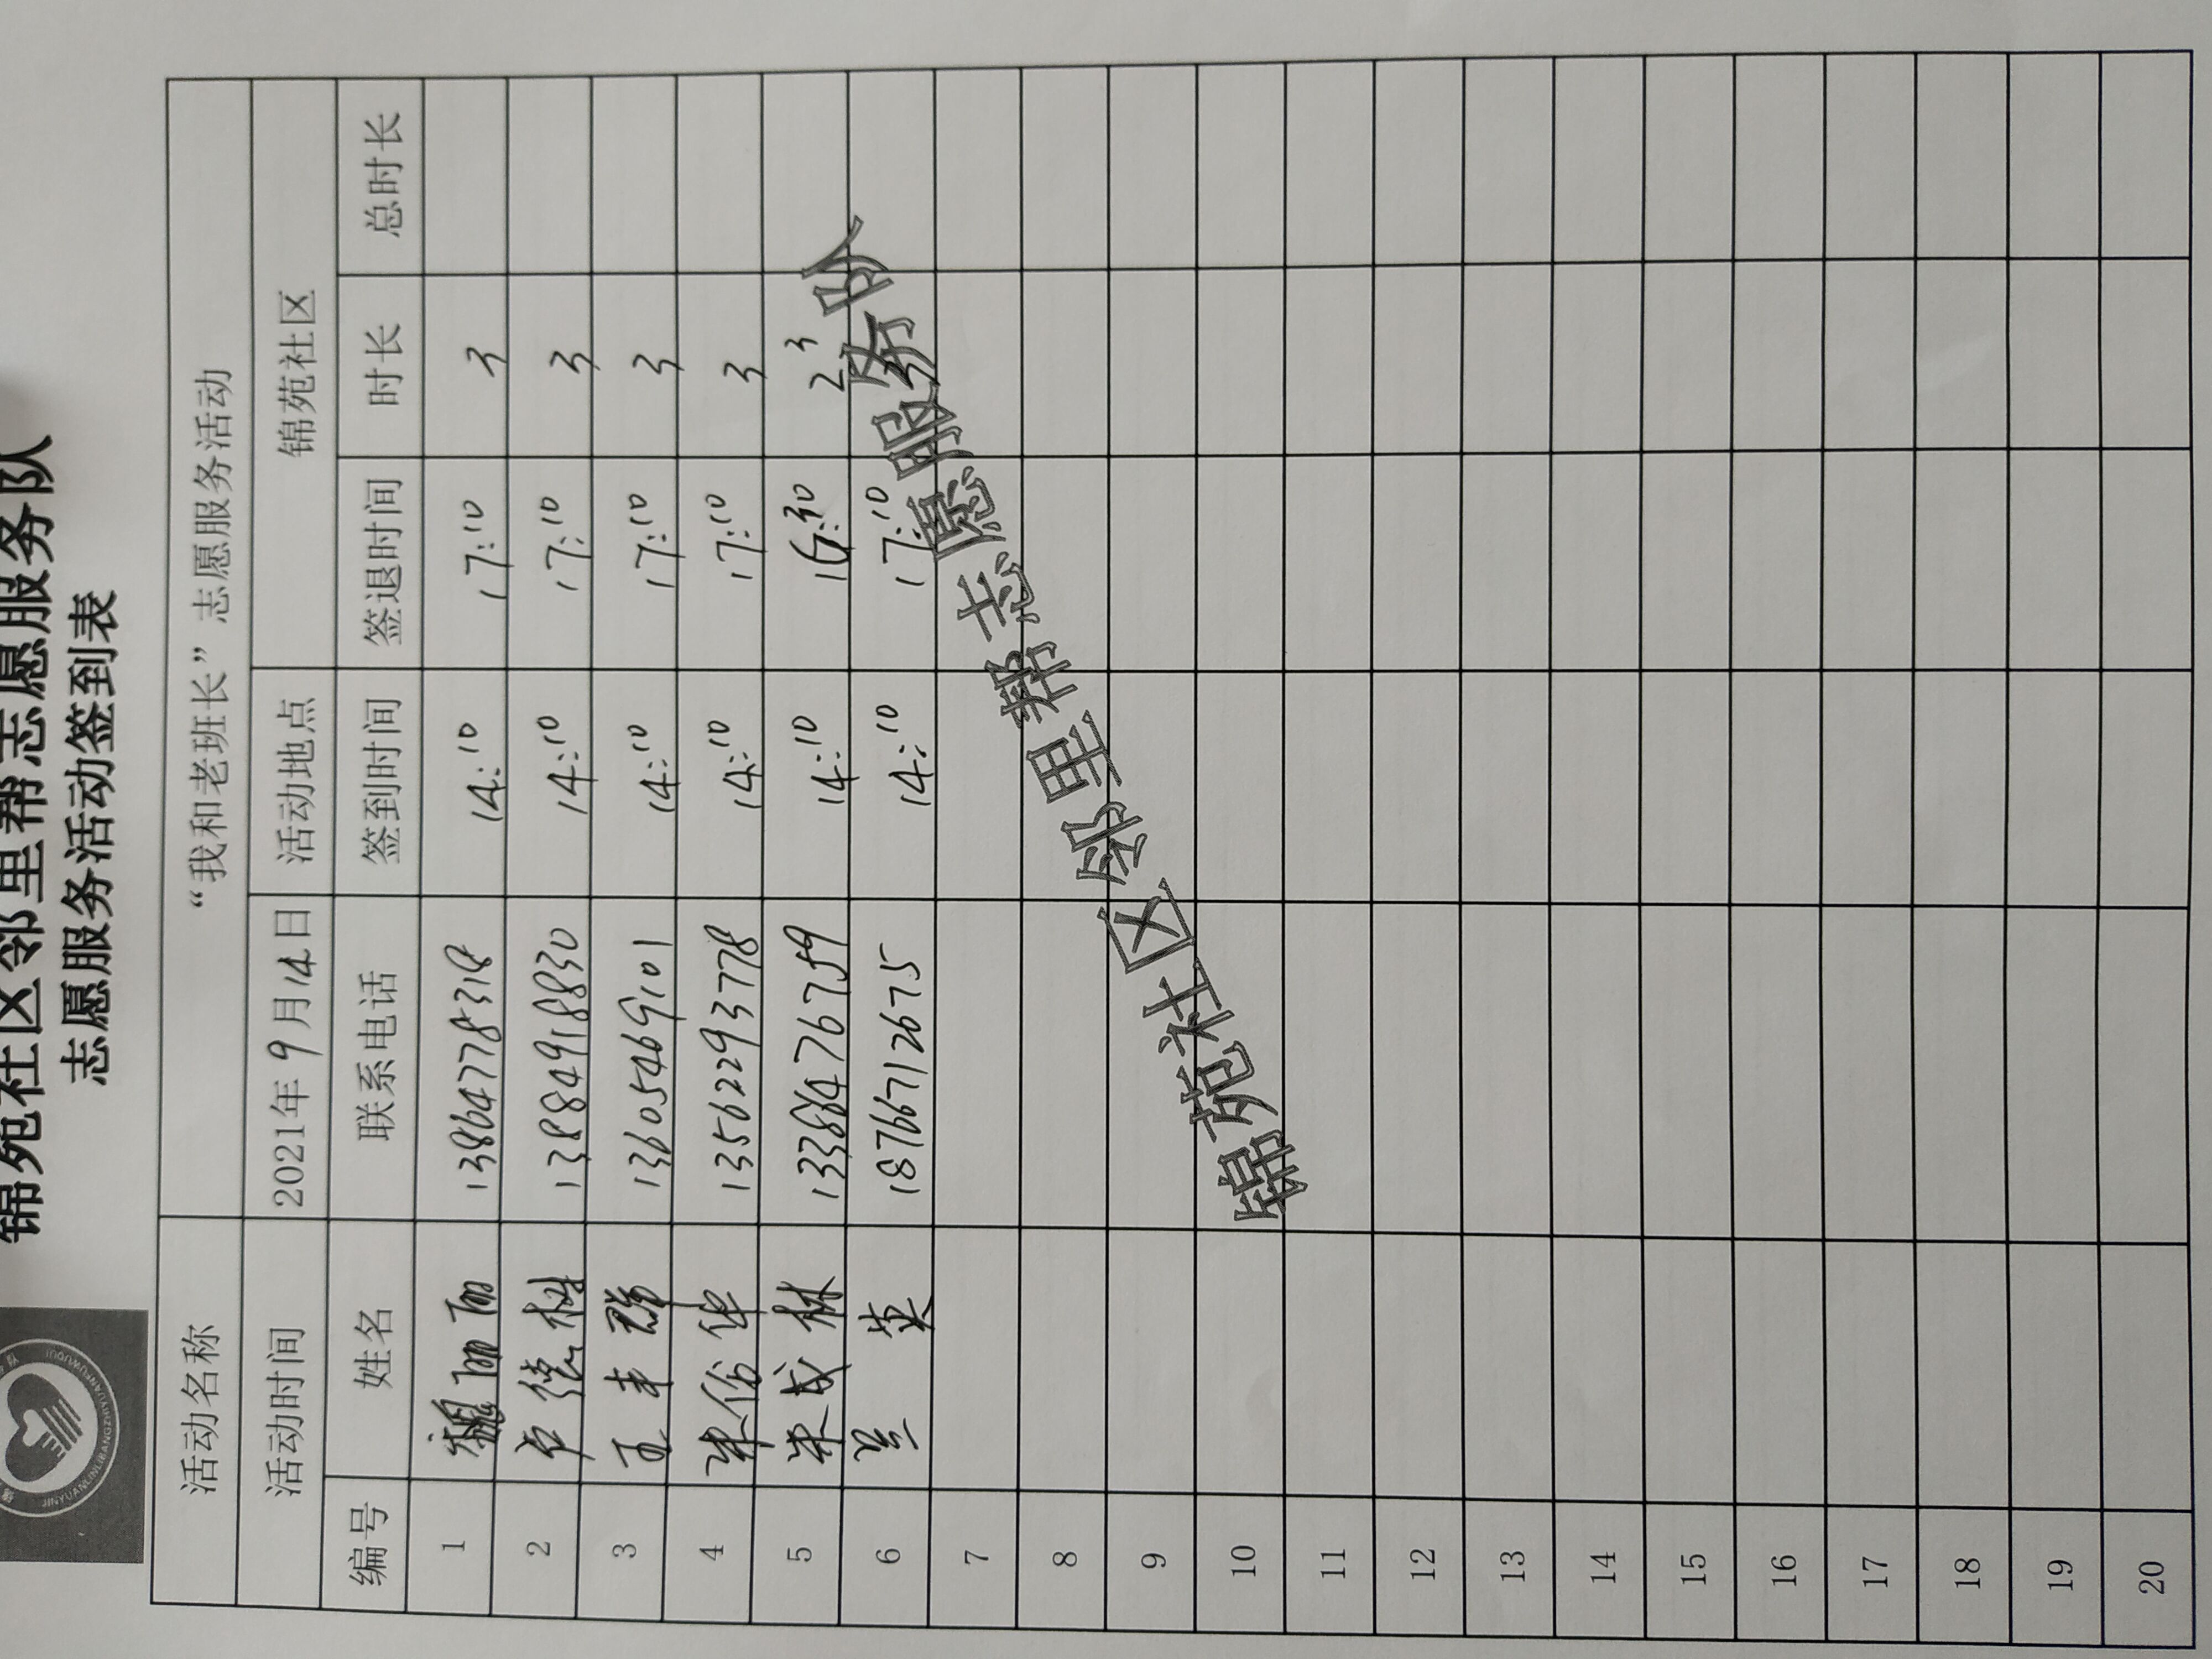 锦苑社区邻里帮志愿服务队
志愿服务活动签到表
活动名称 “我和老班长”志愿服务活动
活动时间 2021年9月14日 活动地点 锦苑社区
编号 姓名 联系电话 签到时间 签退时间 时长 总时长
1 魏丽丽 13864778318 14:10 17:10 3
2 卢德树 13884918830 14:10 17:10 3
3 王丰群 13605469101 14:10 17:10 3
4 宋俗华 13562293778 14:10 17:10 3
5 宋成林 14:10 16:30 2
6 兰英 18766712675 14:10 17:10 3
7
8
9
10
11
12
13
14
15
16
17
18
19
20
锦苑社区邻里帮志愿服务队